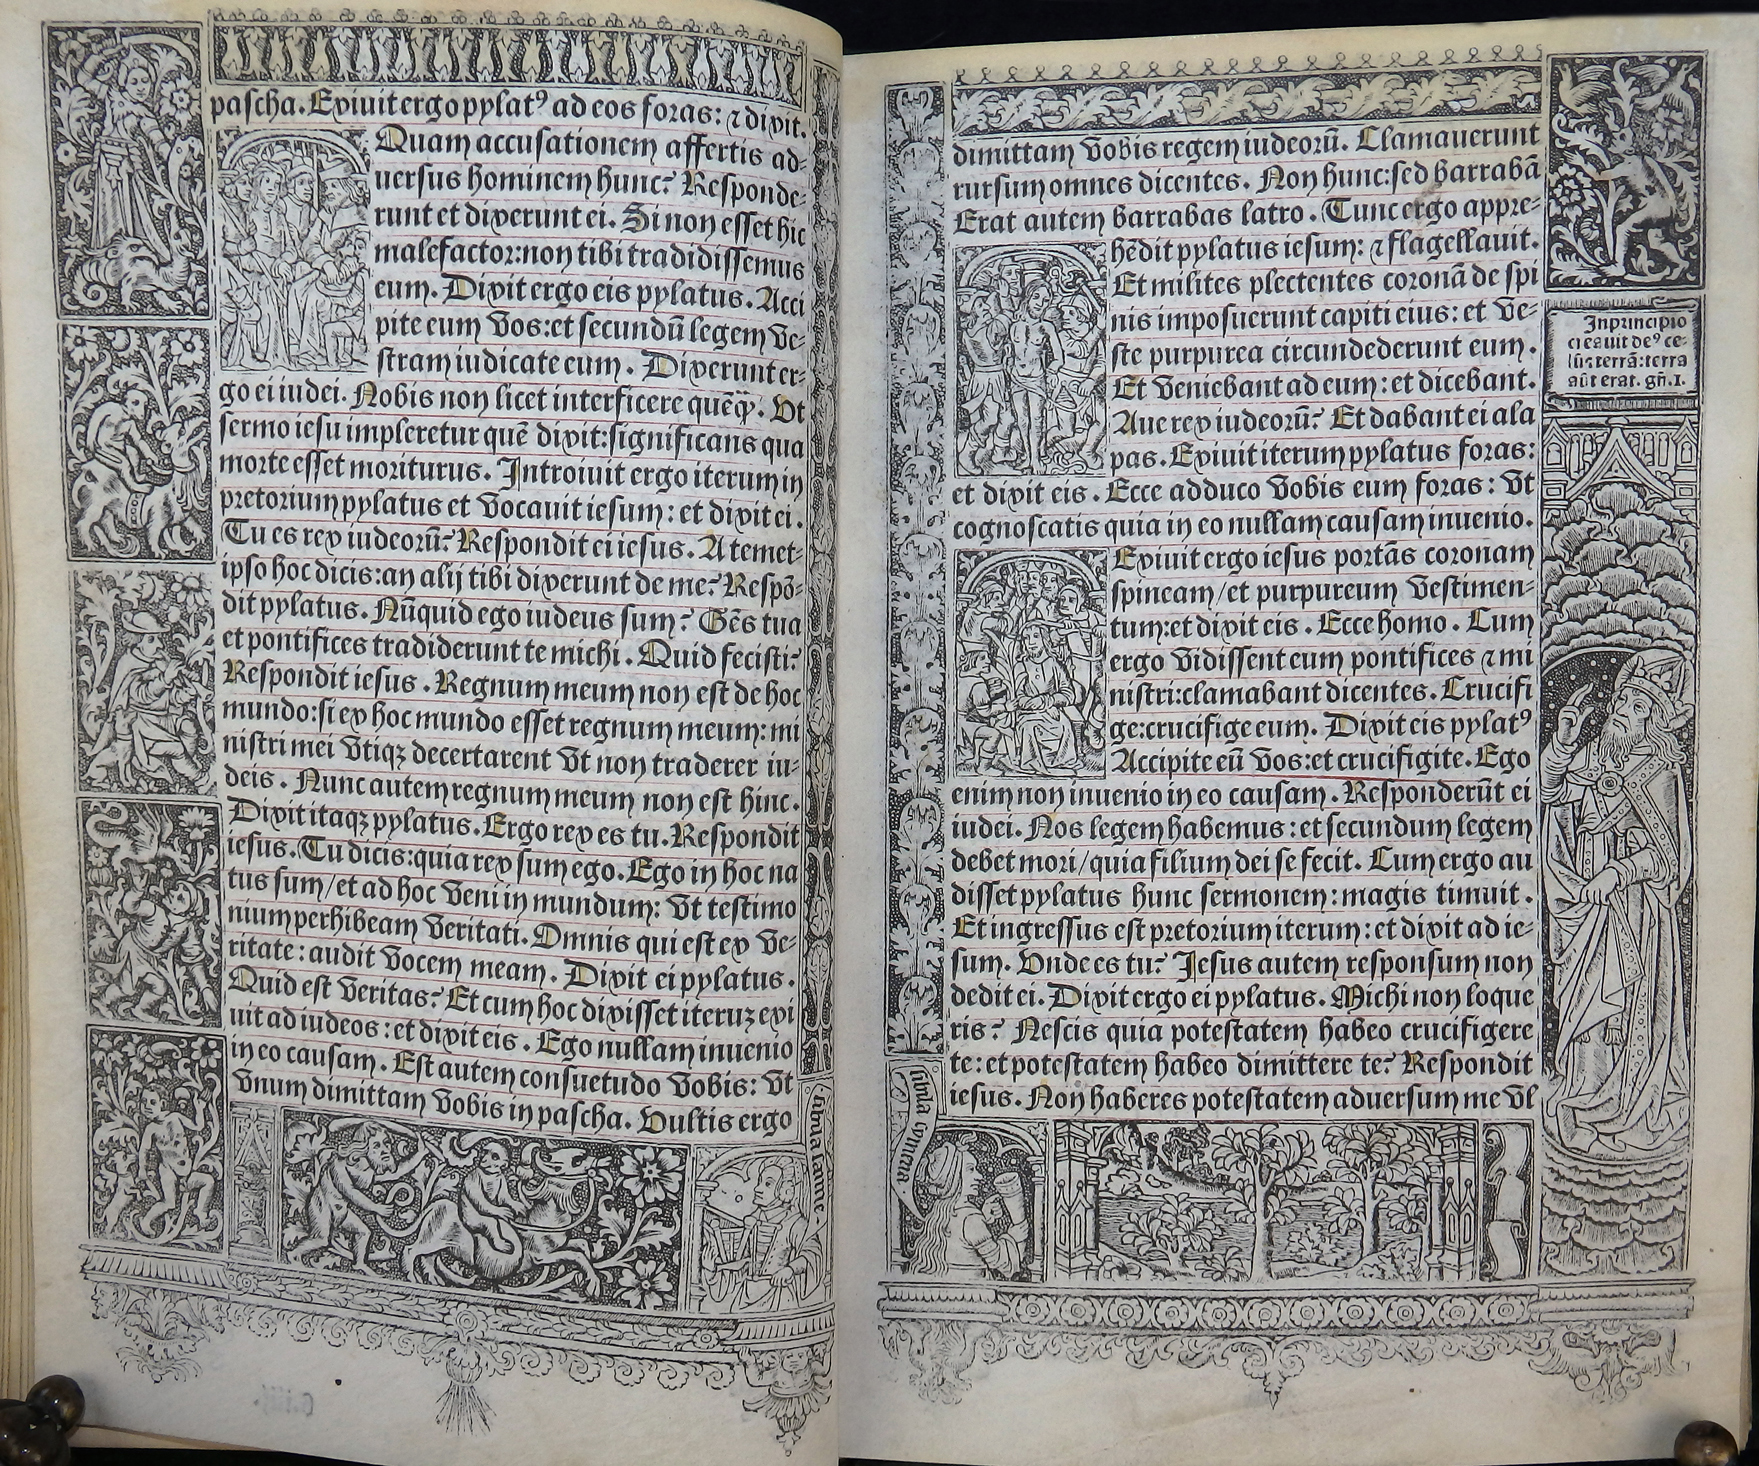 pascha. Exiuit ergo pylatꝰ ad eos foras: ⁊ dixit.
Quam accusationem affertis ad-
uersus hominem hunc? Responde-
runt et dixerunt ei. Si non esset hic
malefactor: non tibi tradidissemus
eum. Dixit ergo eis pylatus. Acci
pite eum vos: et secundū legem ve-
stram iudicate eum. Dixerunt er-
go ei iudei. Nobis non licet interficere quēq̄ꝫ. Vt
sermo iesu impleretur quē dixit: significans qua
morte esset moriturus. Introiuit ergo iterum in
pretorium pylatus et vocauit iesum: et dixit ei.
Tu es rex iudeorū? Respondit ei iesus. A temet-
ipso hoc dicis: an alij tibi dixerunt de me? Respō-
dit pylatus. Nūquid ego iudeus sum? Gēs tua
et pontifices tradiderunt te michi. Quid fecisti?
Respondit iesus. Regnum meum non est de hoc
mundo: si ex hoc mundo esset regnum meum: mi
nistri mei vtiqꝫ decertarent vt non traderer iu-
deis. Nunc autem regnum meum non est hinc.
Dixit itaqꝫ pylatus. Ergo rex es tu. Respondit
iesus. Tu dicis: quia rex sum ego. Ego in hoc na
tus sum/ et ad hoc veni in mundum: vt testimo
nium perhibeam veritati. Omnis qui est ex ve-
ritate: audit vocem meam. Dixit ei pylatus.
Quid est veritas? Et cum hoc dixisset iteruꝫ exi
uit ad iudeos: et dixit eis. Ego nullam inuenio
in eo causam. Est autem consuetudo vobis: vt
vnum dimittam vobis in pascha. Vultis ergo
dimittam vobis regem iudeorū. Clamauerunt
rursum omnes dicentes. Non hunc: sed barrabā
Erat autem barrabas latro. Tunc ergo appre-
hēdit pylatus iesum: ⁊ flagellauit.
Et milites plectentes coronā de spi
nis imposuerunt capiti eius: et ve-
ste purpurea circundederunt eum.
Et veniebant ad eum: et dicebant.
Aue rex iudeorū? Et dabant ei ala
pas. Exiuit iterum pylatus foras:
et dixit eis. Ecce adduco vobis eum foras: vt
cognoscatis quia in eo nullam causam inuenio.
Exiuit ergo iesus portās coronam
spineam/ et purpureum vestimen-
tum: et dixit eis. Ecce homo. Cum
ergo vidissent eum pontifices ⁊ mi
nistri: clamabant dicentes. Crucifi
ge: crucifige eum. Dixit eis pylatꝰ
Accipite eū vos: et crucifigite. Ego
enim non inuenio in eo causam. Responderūt ei
iudei. Nos legem habemus: et secundum legem
debet mori/ quia filium dei se fecit. Cum ergo au
disset pylatus hunc sermonem: magis timuit.
Et ingressus est pretorium iterum: et dixit ad ie-
sum. Vnde es tu? Jesus autem responsum non
dedit ei. Dixit ergo ei pylatus. Michi non loque
ris? Nescis quia potestatem habeo crucifigere
te: et potestatem habeo dimittere te? Respondit
iesus. Non haberes potestatem aduersum me vl
In principio
creauit deꝰ ce-
lū ⁊ terrā: terra
aūt erat. gn̄. I.